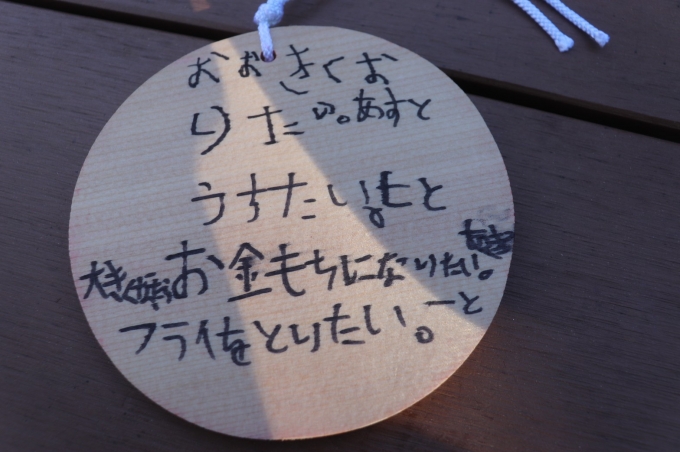 おおきくお
りたい。あすと
うちたい。もと
お金もちになりたい。
フライをとりたい。ーと